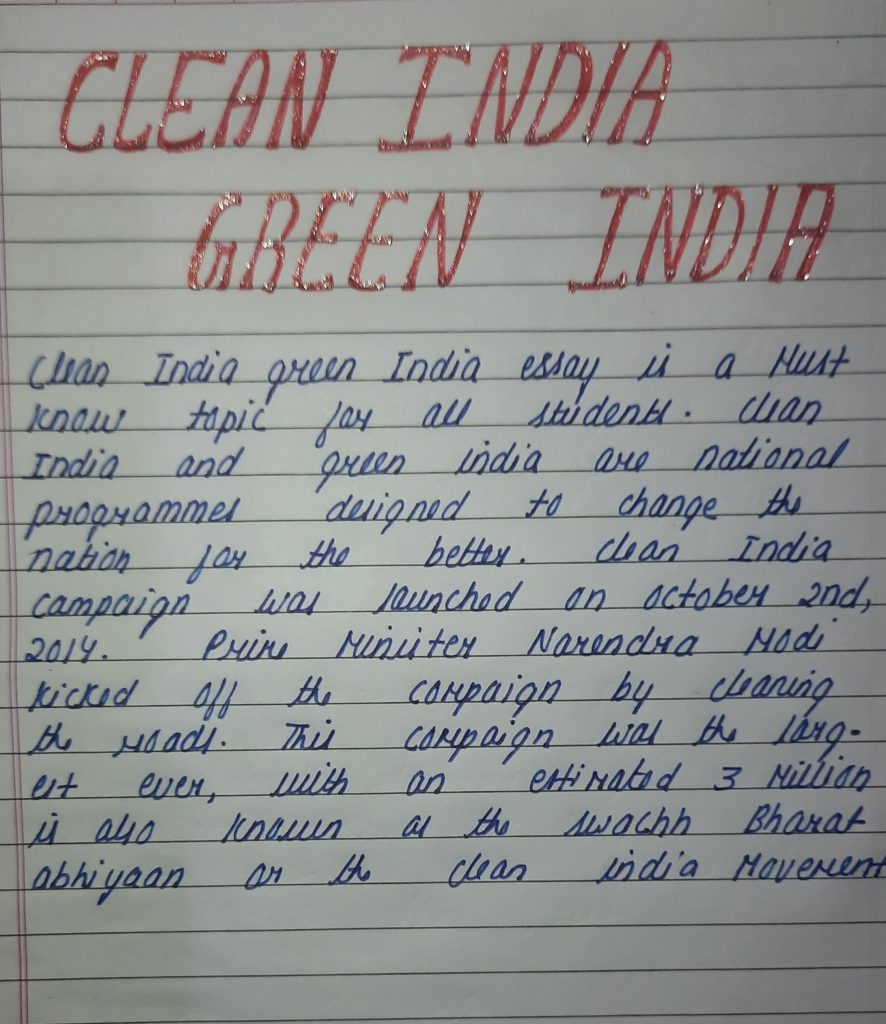 CLEAN INDIA
GREEN INDIA
Clean India green India essay is a Must
know topic for all students. Clean
India and green india are national
programmes designed to change the
nation for the better. Clean India
campaign was launched on october 2nd,
2014. Prime Minister Narendra Modi
kicked off the campaign by cleaning
the roads. This campaign was the larg-
est ever, with an estimated 3 Million
is also known as the swachh Bharat
abhiyaan or the clean india Movement